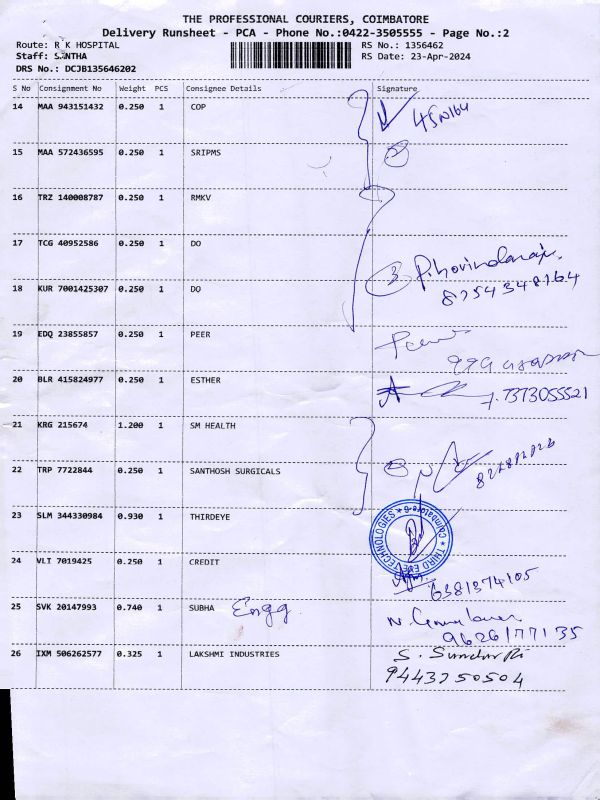 THE PROFESSIONAL COURIERS, COIMBATORE
Delivery Runsheet - PCA - Phone No.:0422-3505555 - Page No.:2
Route: R K HOSPITAL RS No.: 1356462
Staff: SANTHA RS Date: 23-Apr-2024
DRS No.: DCJB135646202
S No Consignment No Weight PCS Consignee Details Signature
14 MAA 943151432 0.250 1 COP
15 MAA 572436595 0.250 1 SRIPMS 2
16 TRZ 140008787 0.250 1 RMKV
17 TCG 40952586 0.250 1 DO
3
18 KUR 7001425307 0.250 1 DO
8754348164
19 EDQ 23855857 0.250 1 PEER
20 BLR 415824977 0.250 1 ESTHER 7373055521
21 KRG 215674 1.200 1 SM HEALTH
22 TRP 7722844 0.250 1 SANTHOSH SURGICALS
23 SLM 344330984 0.930 1 THIRDEYE
THIRD EYE TECHNOLOGIES ★ Coimbatore-6 ★
24 VLI 7019425 0.250 1 CREDIT 6381374105
25 SVK 20147993 0.740 1 SUBHA Engg.
9626177135
26 IXM 506262577 0.325 1 LAKSHMI INDUSTRIES
9443750504